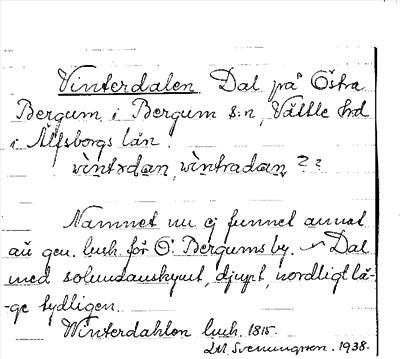 Vinterdalen Dal på Östra
Bergum i Bergum s:n, Vättle hd
i Älfsborgs län.
vìntədan, vìntradan ??
Namnet nu ej funnet annat
än gen. lush. för Ö. Bergums by. Dal
med solundanskymt, djupt, nordligt lä-
-ge tydligen.
Winterdahlen lush. 1815.
Svenungson. 1938.